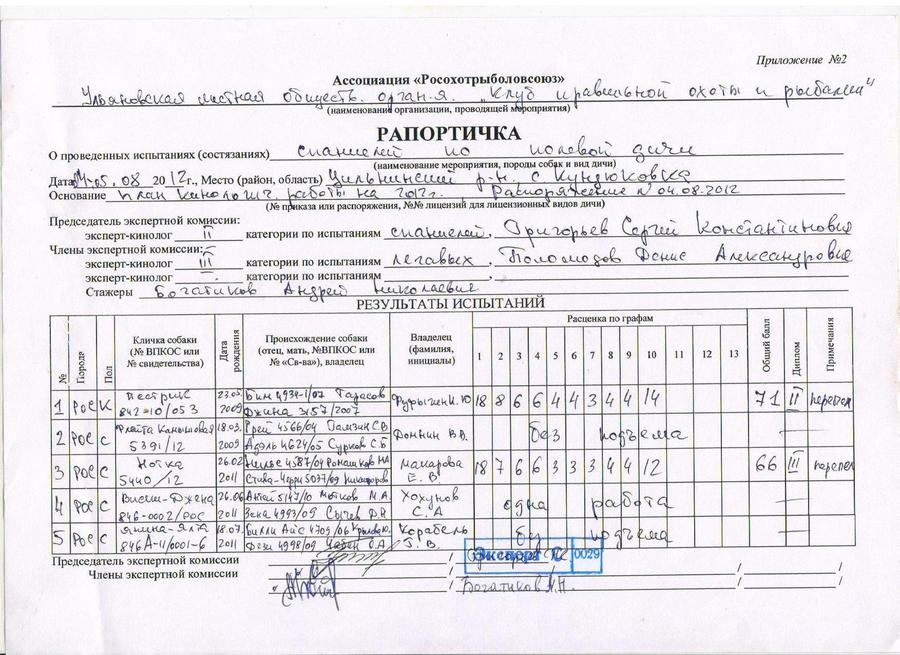 Приложение №2
Ассоциация «Росохотрыболовсоюз»
Ульяновская местная обществ. орган-я. "Клуб правильной охоты и рыбалки"
(наименование организации, проводящей мероприятия)
РАПОРТИЧКА
О проведенных испытаниях (состязаниях) спаниелей по полевой дичи
(наименование мероприятия, породы собак и вид дичи)
Дата 04-05.08 2012г., Место (район, область) Цильнинский р-н. с Кундюковка
Основание план кинологич. работы на 2012г. Распоряжение №04.08.2012
(№ приказа или распоряжения, №№ лицензий для лицензионных видов дичи)
Председатель экспертной комиссии:
эксперт-кинолог II категории по испытаниям спаниелей, Григорьев Сергей Константинович
Члены экспертной комиссии:
эксперт-кинолог III категории по испытаниям легавых, Поломодов Денис Александрович
эксперт-кинолог - категории по испытаниям
Стажеры Богатиков Андрей Николаевич
РЕЗУЛЬТАТЫ ИСПЫТАНИЙ
№ Порода Пол Кличка собаки (№ ВПКОС или № свидетельства) Дата рождения Происхождение собаки (отец, мать, №ВПКОС или № «Св-ва»), владелец Владелец (фамилия, инициалы) Расценка по графам Общий балл Диплом Примечания
1 2 3 4 5 6 7 8 9 10 11 12 13
1 РОС К Пестрик 23.05. Бим 4934-1/07 Тарасов 18 8 6 6 4 4 3 4 4 14 71 II перепел
842-10/053 2009 Джина 3157/2007
2 РОС С Флейта Камышовая 18.03. Грей 4566/04 С.В. Фомин В.В. без подъема —
5391/12 2009 Адель 4624/05 Сурков С.Б
3 РОС С Нотка 26.02 4587/04 Макарова 18 7 6 6 3 3 3 4 4 12 66 III перепел
5440/12 2011 5037/09 Е.В.
4 РОС С Джена 26.06 Антей 5147/10 М.А. Хохунов одна работа —
846-0002/РОС 2011 Зена 4993/09 Сычев С.А
5 РОС С Янина-Ялта 18.07. Билли Айс 4709/06 Корабель без подъема
846А-11/0001-6 2011 4998/09 О.А. В.
Председатель экспертной комиссии
Члены экспертной комиссии
Эксперт С 0029
Богатиков А.Н.